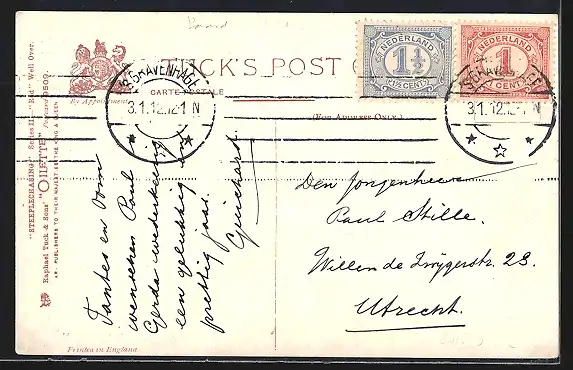 TUCK'S POST
CARTE POSTALE
By Appointment
(FOR ADDRESS ONLY.)
NEDERLAND
1½
1½ CENT
NEDERLAND
1
½ CENT
'S-GRAVENHAGE
3.1.12.12-1 N
'S-GRAVENHAGE
3.1.12.12-1 N
"STEEPLECHASING." Series II. "Red" Well Over.
Raphael Tuck & Sons' "OILETTE" Postcard 9509.
ART PUBLISHERS TO THEIR MAJESTIES THE KING & QUEEN.
Tantes en Oom
wenschen Paul
Gerda wederkeerig
een gelukkig en
prettig jaar.
Guichart.
Den Jongenheer
Paul Stille.
Willem de Zwijgerstr. 23.
Utrecht.
Printed in England